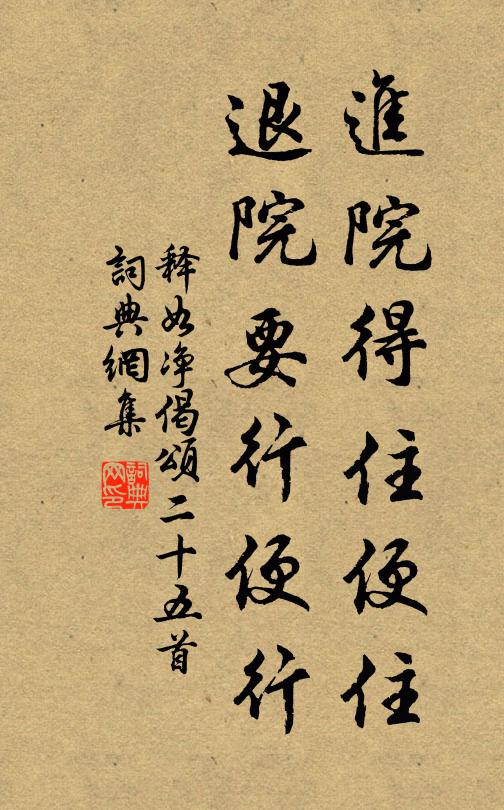 進院得住便住
退院要行便行
释如净偈頌二十五首
詞典網集
詞典網印